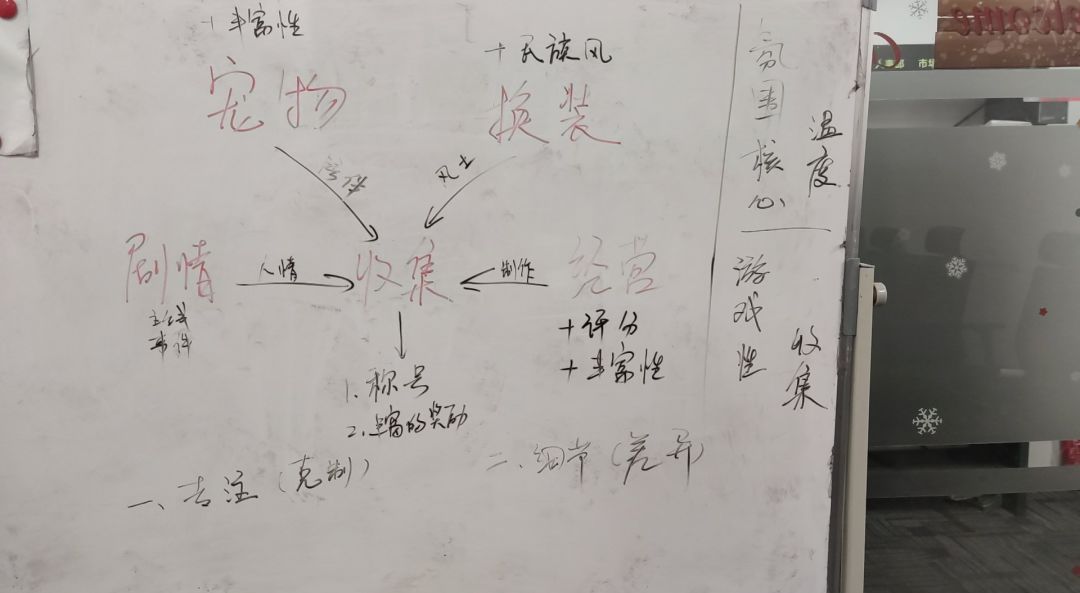 +丰富性
+民族风
宠物
换装
风土
剧情
人情
收集
制作
经营
主线
事件
+评分
+丰富性
1.称号
2.丰富的奖励
一、专注(克制)
二、细节(差异)
氛围核心
温度
游戏性
收集
人事部 市场